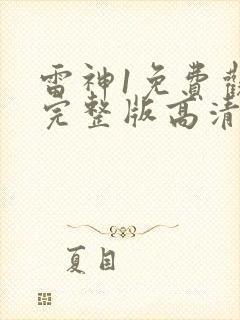 雷神1免費觀
完整版高清
夏目